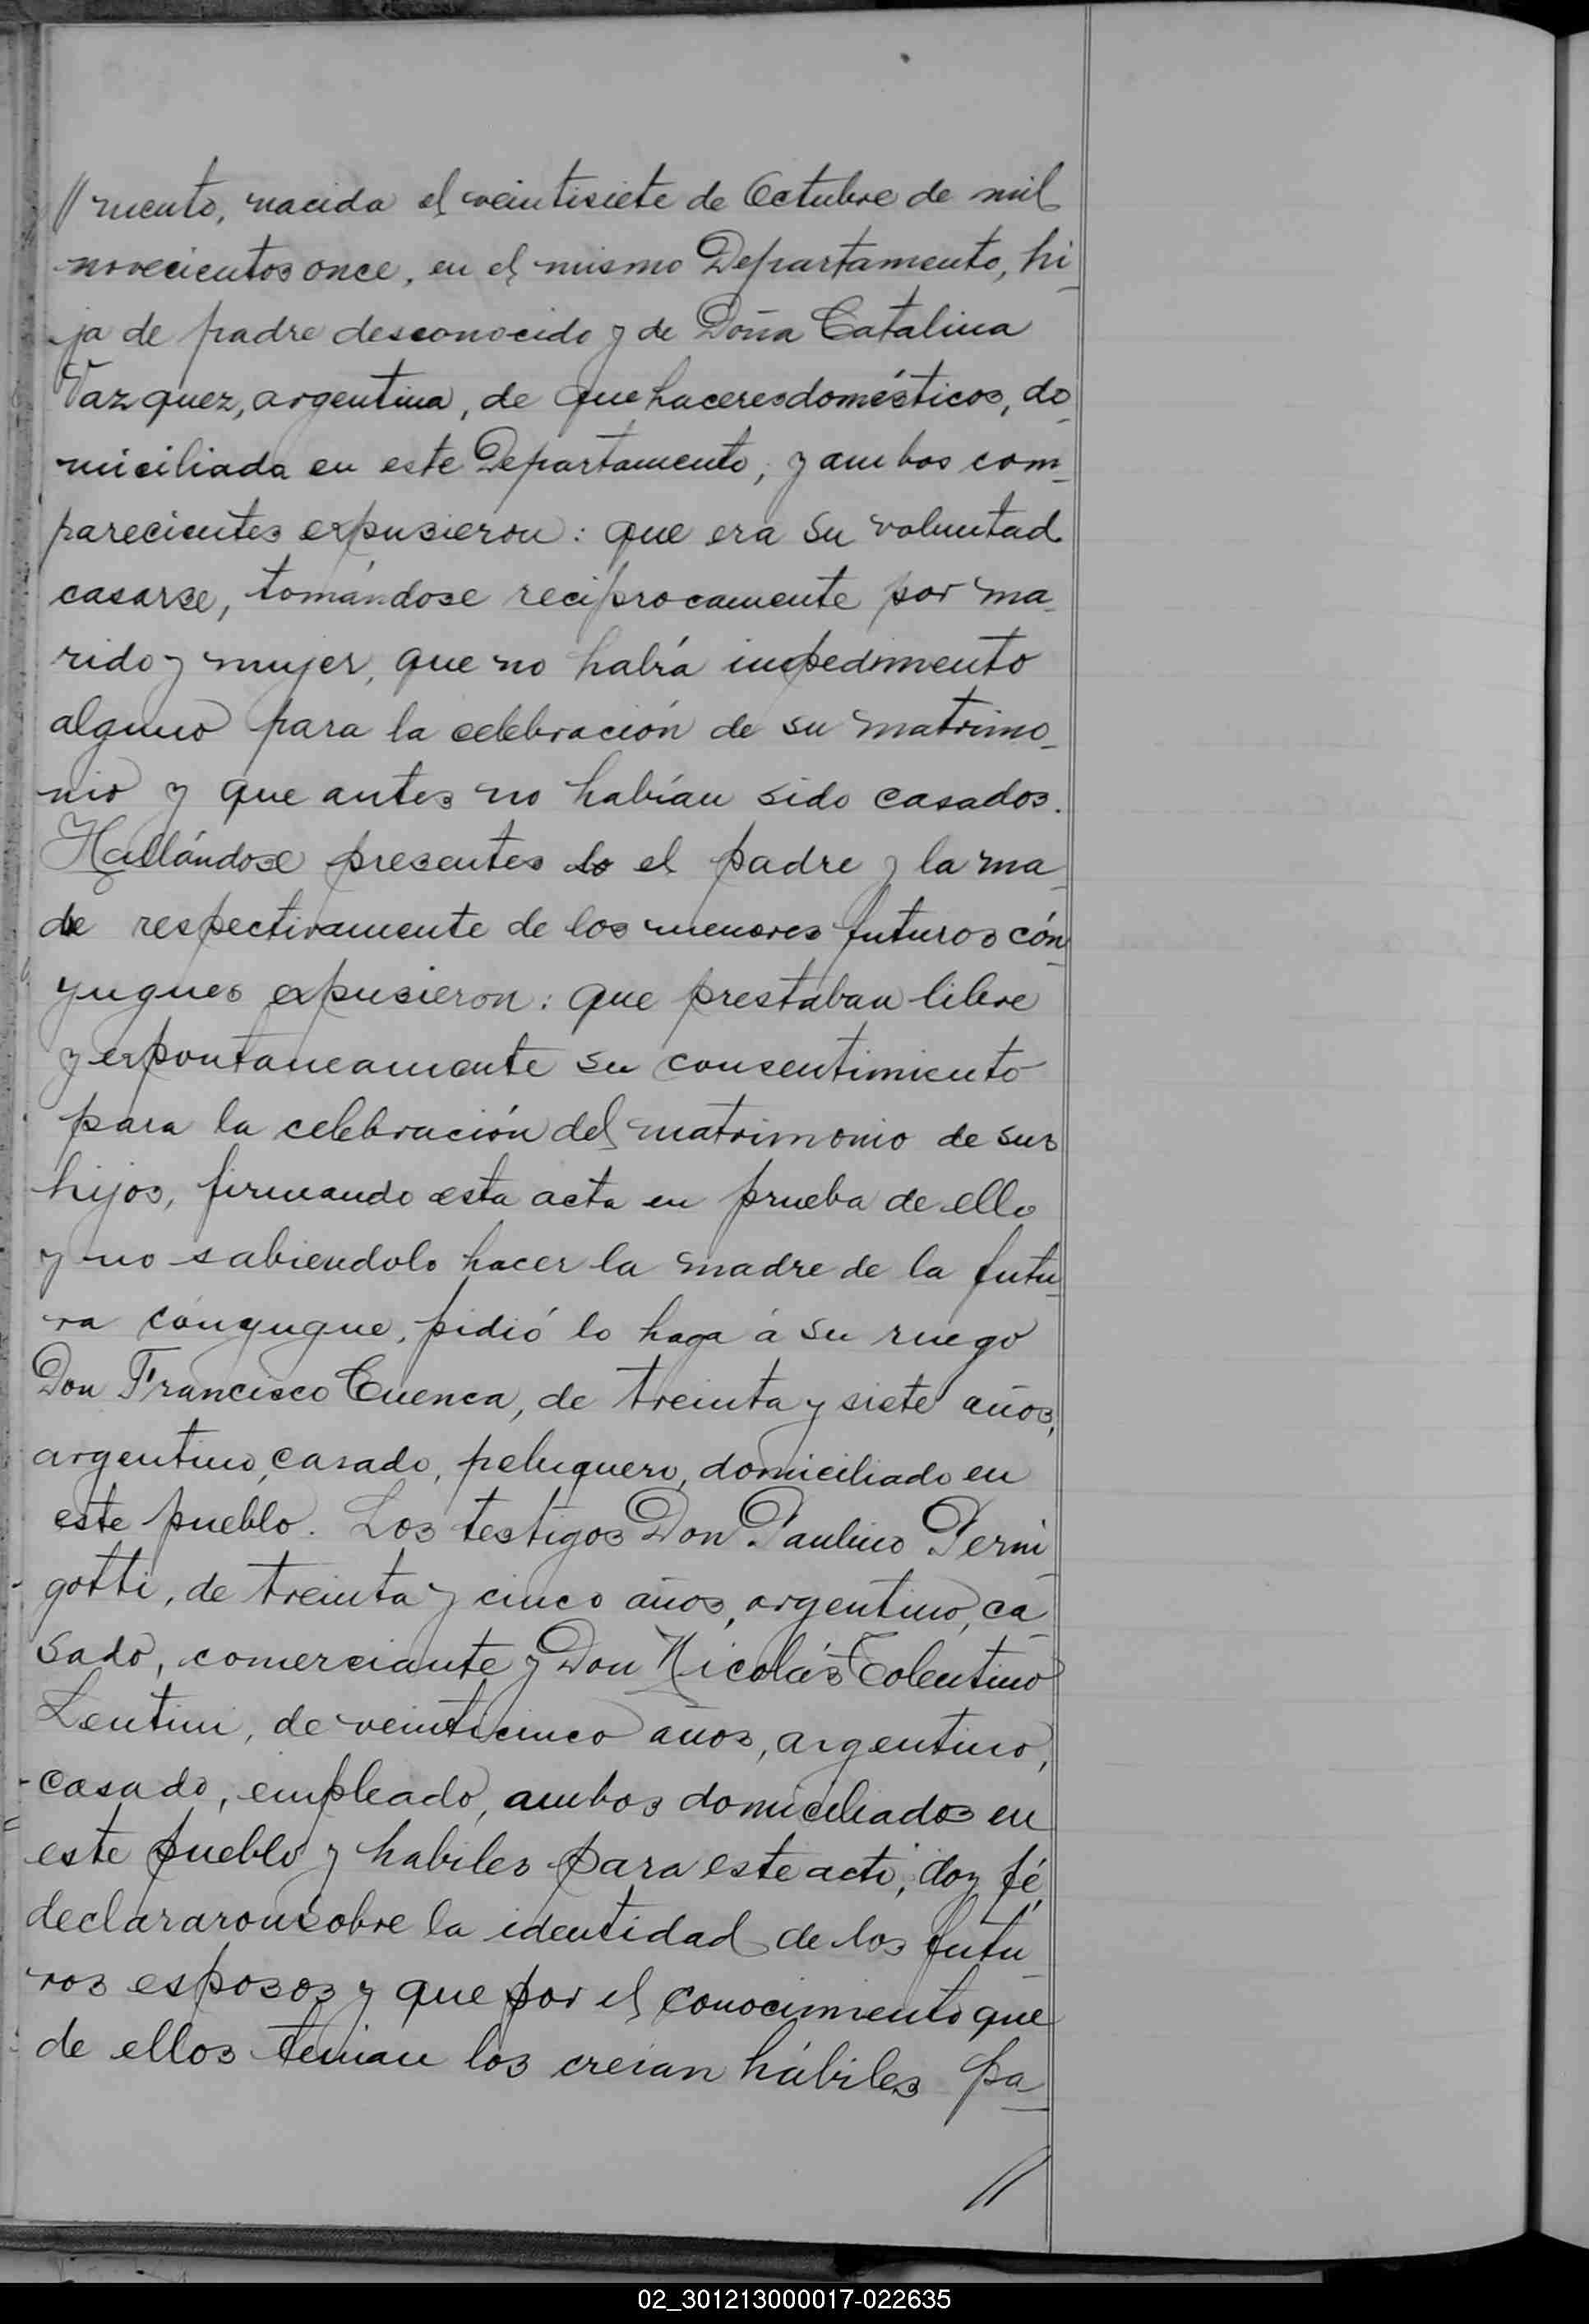 // mento, nacida el veintisiete de Octubre de mil
novecientos once, en el mismo Departamento, hi-
ja de padre desconocido y de Doña Catalina
Vazquez, argentina, de que haceres domésticos, do-
miciliada en este Departamento, y ambos com-
parecientes expusieron: que era su voluntad
casarse, tomándose reciprocamente por ma-
rido y mujer, que no habrá impedimento
alguno para la celebración de su matrimo-
nio y que antes no habían sido casados.
Hallándose presentes lo el padre y la ma-
de respectivamente de los menores futuros cón-
yugues expusieron: que prestaban libre
y expontaneamente su consentimiento
para la celebración del matrimonio de sus
hijos, firmando esta acta en prueba de ello
y no sabiendolo hacer la madre de la futu-
ra cónyugue, pidió lo haga á su ruego
Don Francisco Cuenca, de treinta y siete años,
argentino, casado, peluquero, domiciliado en
este pueblo. Los testigos Don Paulino Perni-
gotti, de treinta y cinco años, argentino, ca-
sado, comerciante y Don Nicolás Tolentino
Lentini, de veinticinco años, argentino,
casado, empleado, ambos domiciliados en
este pueblo y habiles para este acto, doy fé,
declararon sobre la identidad de los futu-
ros esposos y que por el conocimiento que
de ellos tenian los creian hábiles pa-
//
02_301213000017-022635